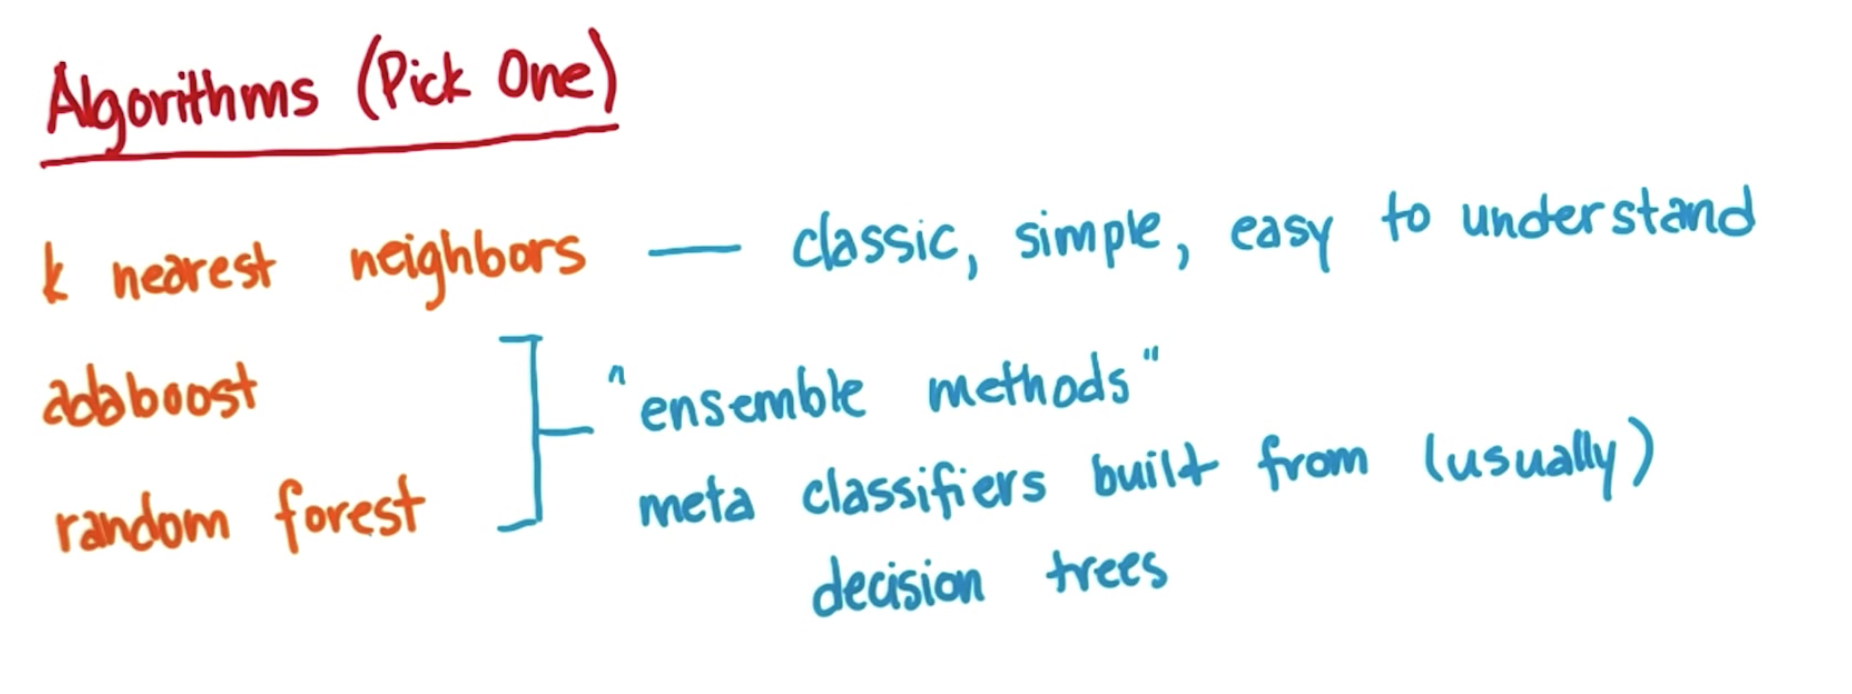 Algorithms (Pick One)
k nearest neighbors — classic, simple, easy to understand
adaboost
"ensemble methods"
random forest
meta classifiers built from (usually)
decision trees